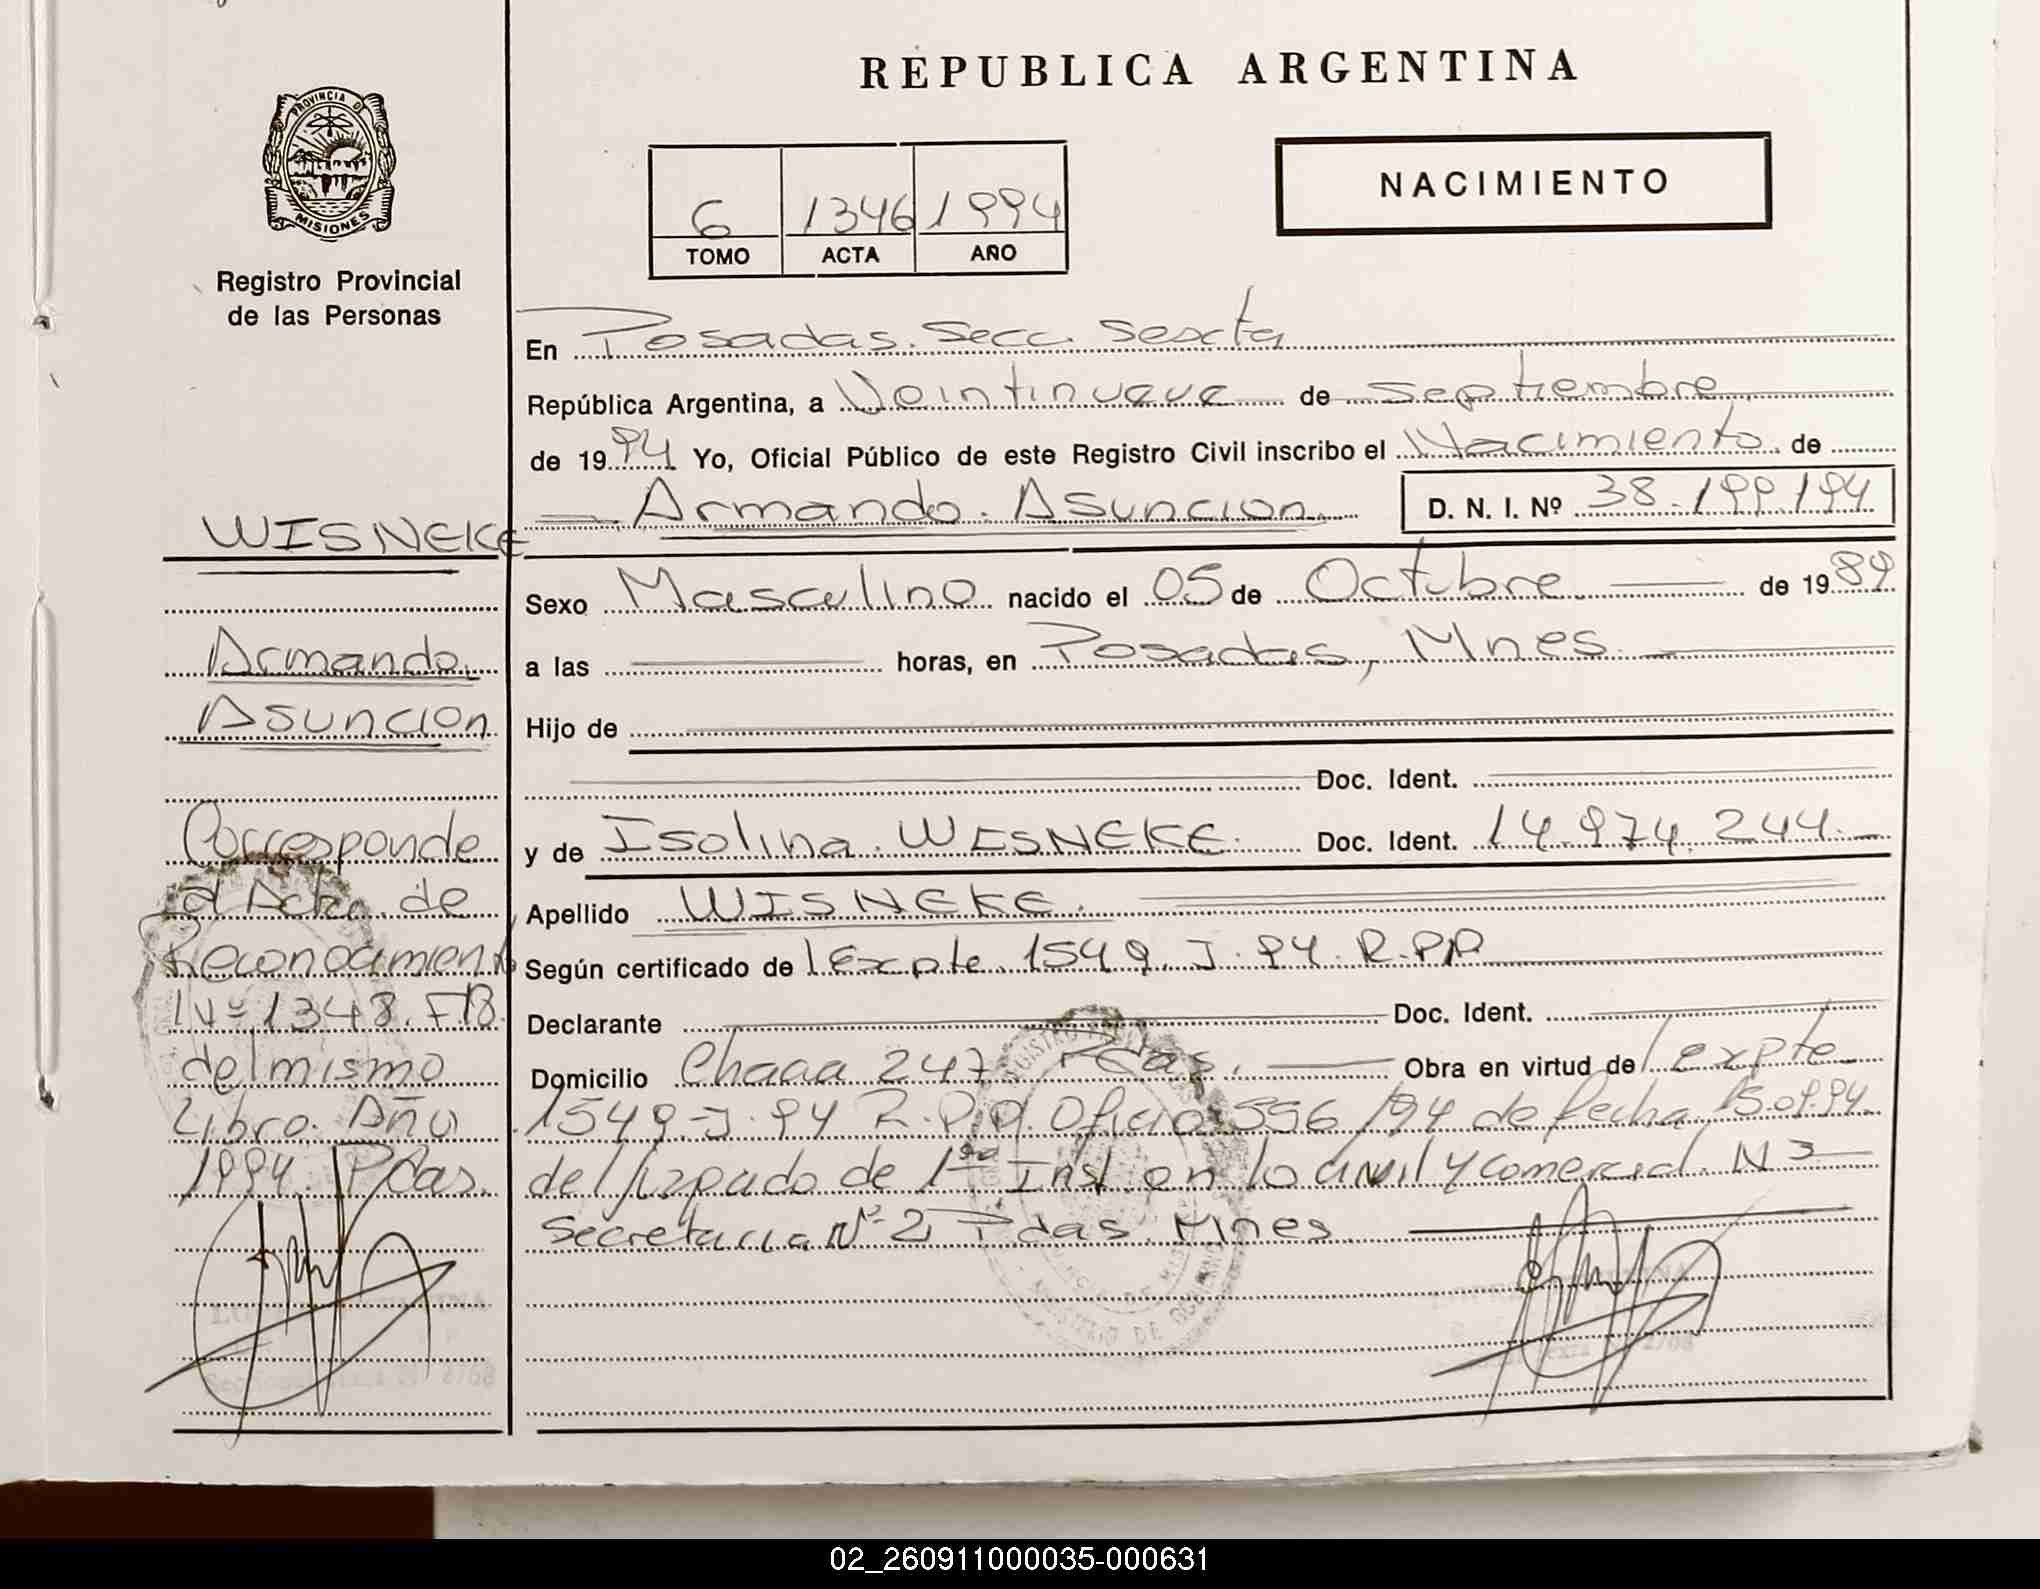 REPUBLICA ARGENTINA
PROVINCIA DE
MISIONES
Registro Provincial
de las Personas
6 1346 1994
TOMO ACTA AÑO
NACIMIENTO
En Posadas. Secc. Sexta
República Argentina, a Veintinueve de septiembre
de 1994 Yo, Oficial Público de este Registro Civil inscribo el Nacimiento de
Armando. Asuncion D. N. I. Nº 38.199.194
Sexo Masculino nacido el 05 de Octubre de 1989
a las horas, en Posadas, Mnes
Hijo de
Doc. Ident.
y de Isolina. WISNEKE. Doc. Ident. 14.974.244
Apellido WISNEKE.
Según certificado de Expte 1549. J. 94. R.P.P
Declarante Doc. Ident.
Domicilio 247 Pdas. Obra en virtud de Expte
1549-J.94 R.P.P. Oficio 556/94 de fecha
del Juzgado de 1ra Inst. en lo civil y comercial. N 3
Secretaria Nº 2 Pdas. Mnes
WISNEKE
Armando.
Asuncion
Corresponde
al Acta. de
Reconocimiento
Nº 1348. F.B.
del mismo
Libro. Año
1994. Pdas.
REGISTRO
MINISTERIO DE GOBIERNO
02_260911000035-000631